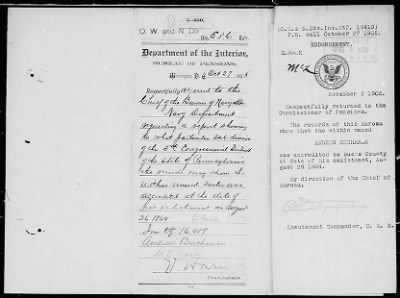 O. W. and N. Div
No. 516
Department of the Interior,
BUREAU OF PENSIONS,
Washington, D. C. Oct 27, 190
Respectfully referred to the
Chief of the Bureau of Navigation
Navy Department
requesting a report showing
to what particular sub-division
of the 5th Congressional District
of the State of Pennsylvania
the records may show the
named sailor was
accredited at the date of
his enlistment on August
26 1864
Inv Ctf. 16,419
Andrew Buchanan
U.S. Navy
V. Warner
Commissioner.
(O.W.& N.Div.Inv.Ctf. 16419)
P.O. call October 27 1905.
ENDORSEMENT.
McK
November 2 1905.
Respectfully returned to the
Commissioner of Pensions.
The records of this bureau
show that the within named
ANDREW BUCHANAN
was accredited to Bucks County
at date of his enlistment, August
26 1864.
By direction of the Chief of
Bureau:
Lieutenant Commander, U. S. N.